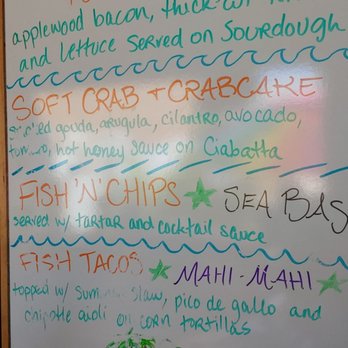 applewood bacon, thick-cut
and lettuce served on Sourdough
SOFT CRAB + CRABCAKE
gouda, arugula, cilantro, avocado,
hot honey sauce on Ciabatta
FISH 'N' CHIPS SEA BAS
served w/ tartar and cocktail sauce
FISH TACOS MAHI-MAHI
topped w/ slaw, pico de gallo and
chipotle aioli on corn tortillas